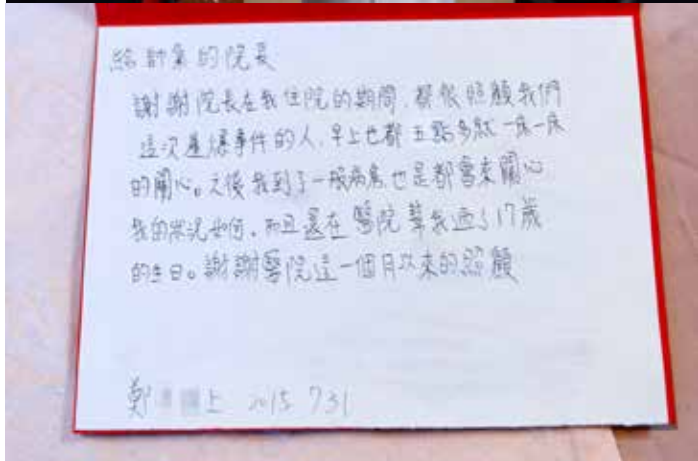 給帥氣的院長
謝謝院長在我住院的期間,都很照顧我們
這次塵爆事件的人,早上也都五點多就一床一床
的關心。之後我到了一般病房也是都會來關心
我的狀況如何,而且還在醫院幫我過了17歲
的生日。謝謝醫院這一個月以來的照顧
鄭 上 2015 7.31